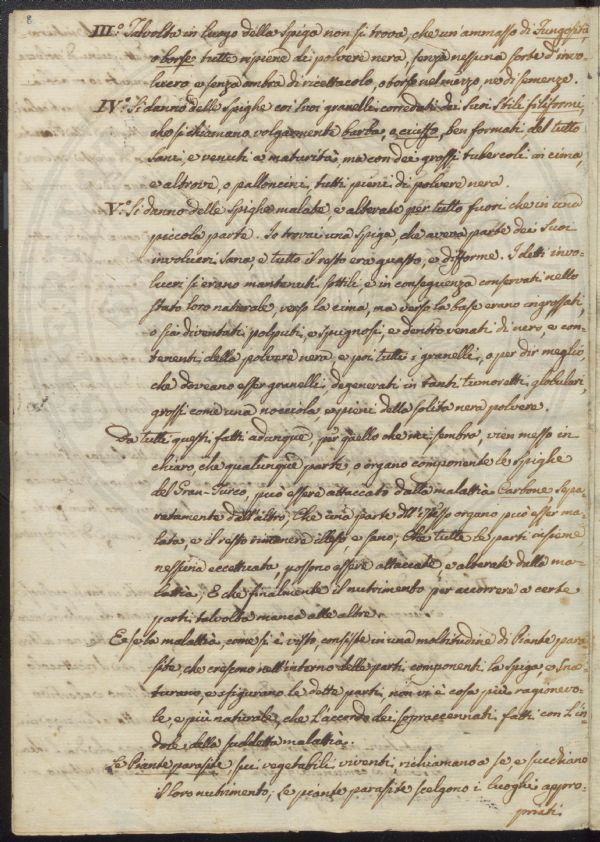 8
III.º Talvolta in luogo della Spiga non si trova, che un ammasso di Fungosità
o borse tutte ripiene di polvere nera, senza nessuna sorte d'invo-
lucro, e senza ombra di ricettacolo, o torso nel mezzo ne di semenze.
IV.º Si danno delle Spighe coi suoi granelli corredati dei suoi Stili filiformi,
che si chiamano volgarmente barba, o ciuffo, ben formati del tutto
sani, e venuti a maturità, ma con dei grossi tubercoli in cima,
e altrove, o palloncini, tutti pieni di polvere nera.
V.º Si danno delle Spighe malate, e alterate per tutto fuori che in una
piccola parte. Io trovai una Spiga, che aveva parte dei suoi
involucri sana, e tutto il resto era guasto, e difforme. I detti invo-
lucri si erano mantenuti sottili, e in conseguenza conservati nello
stato loro naturale, verso la cima, ma verso la base erano ingrossati,
o sia diventati polputi, e spugnosi e dentro venati di nero, e con-
tenenti della polvere nera, e poi tutti i granelli, o per dir meglio,
che doveano esser granelli, degenerati in tanti tumoretti globulari,
grossi come una nocciola e pieni della solita nera polvere.
Da tutti questi fatti adunque, per quello che mi sembra, vien messo in
chiaro, che qualunque parte, o organo componente le Spighe
del Gran-Turco, può essere attaccato dalla malattia Carbone sepa-
ratamente dall'altro; Che una parte dell'istesso organo può esser ma-
lata, e il resto rimanere illeso, e sano; Che tutte le parti insieme,
nessuna eccettuata, possono essere attaccate, e alterate dalla ma-
lattia; E che finalmente il nutrimento per accorrere a certe
parti talvolta manca alle altre.
E se la malattia, come si è visto, consiste in una moltitudine di Piante para-
site, che crescono nell'interno delle parti componenti la spiga, e Snat-
turano, e sfigurano le dette parti, non vi è cosa più ragionevo-
le, e più naturale, che l'accordo dei sopraccennati fatti con l'in-
dole della suddetta malattia.
Le Piante parasite sui vegetabili viventi, richiamano a se, e succhiano
il loro nutrimento; Le piante parasite scelgono i luoghi appro-
priati